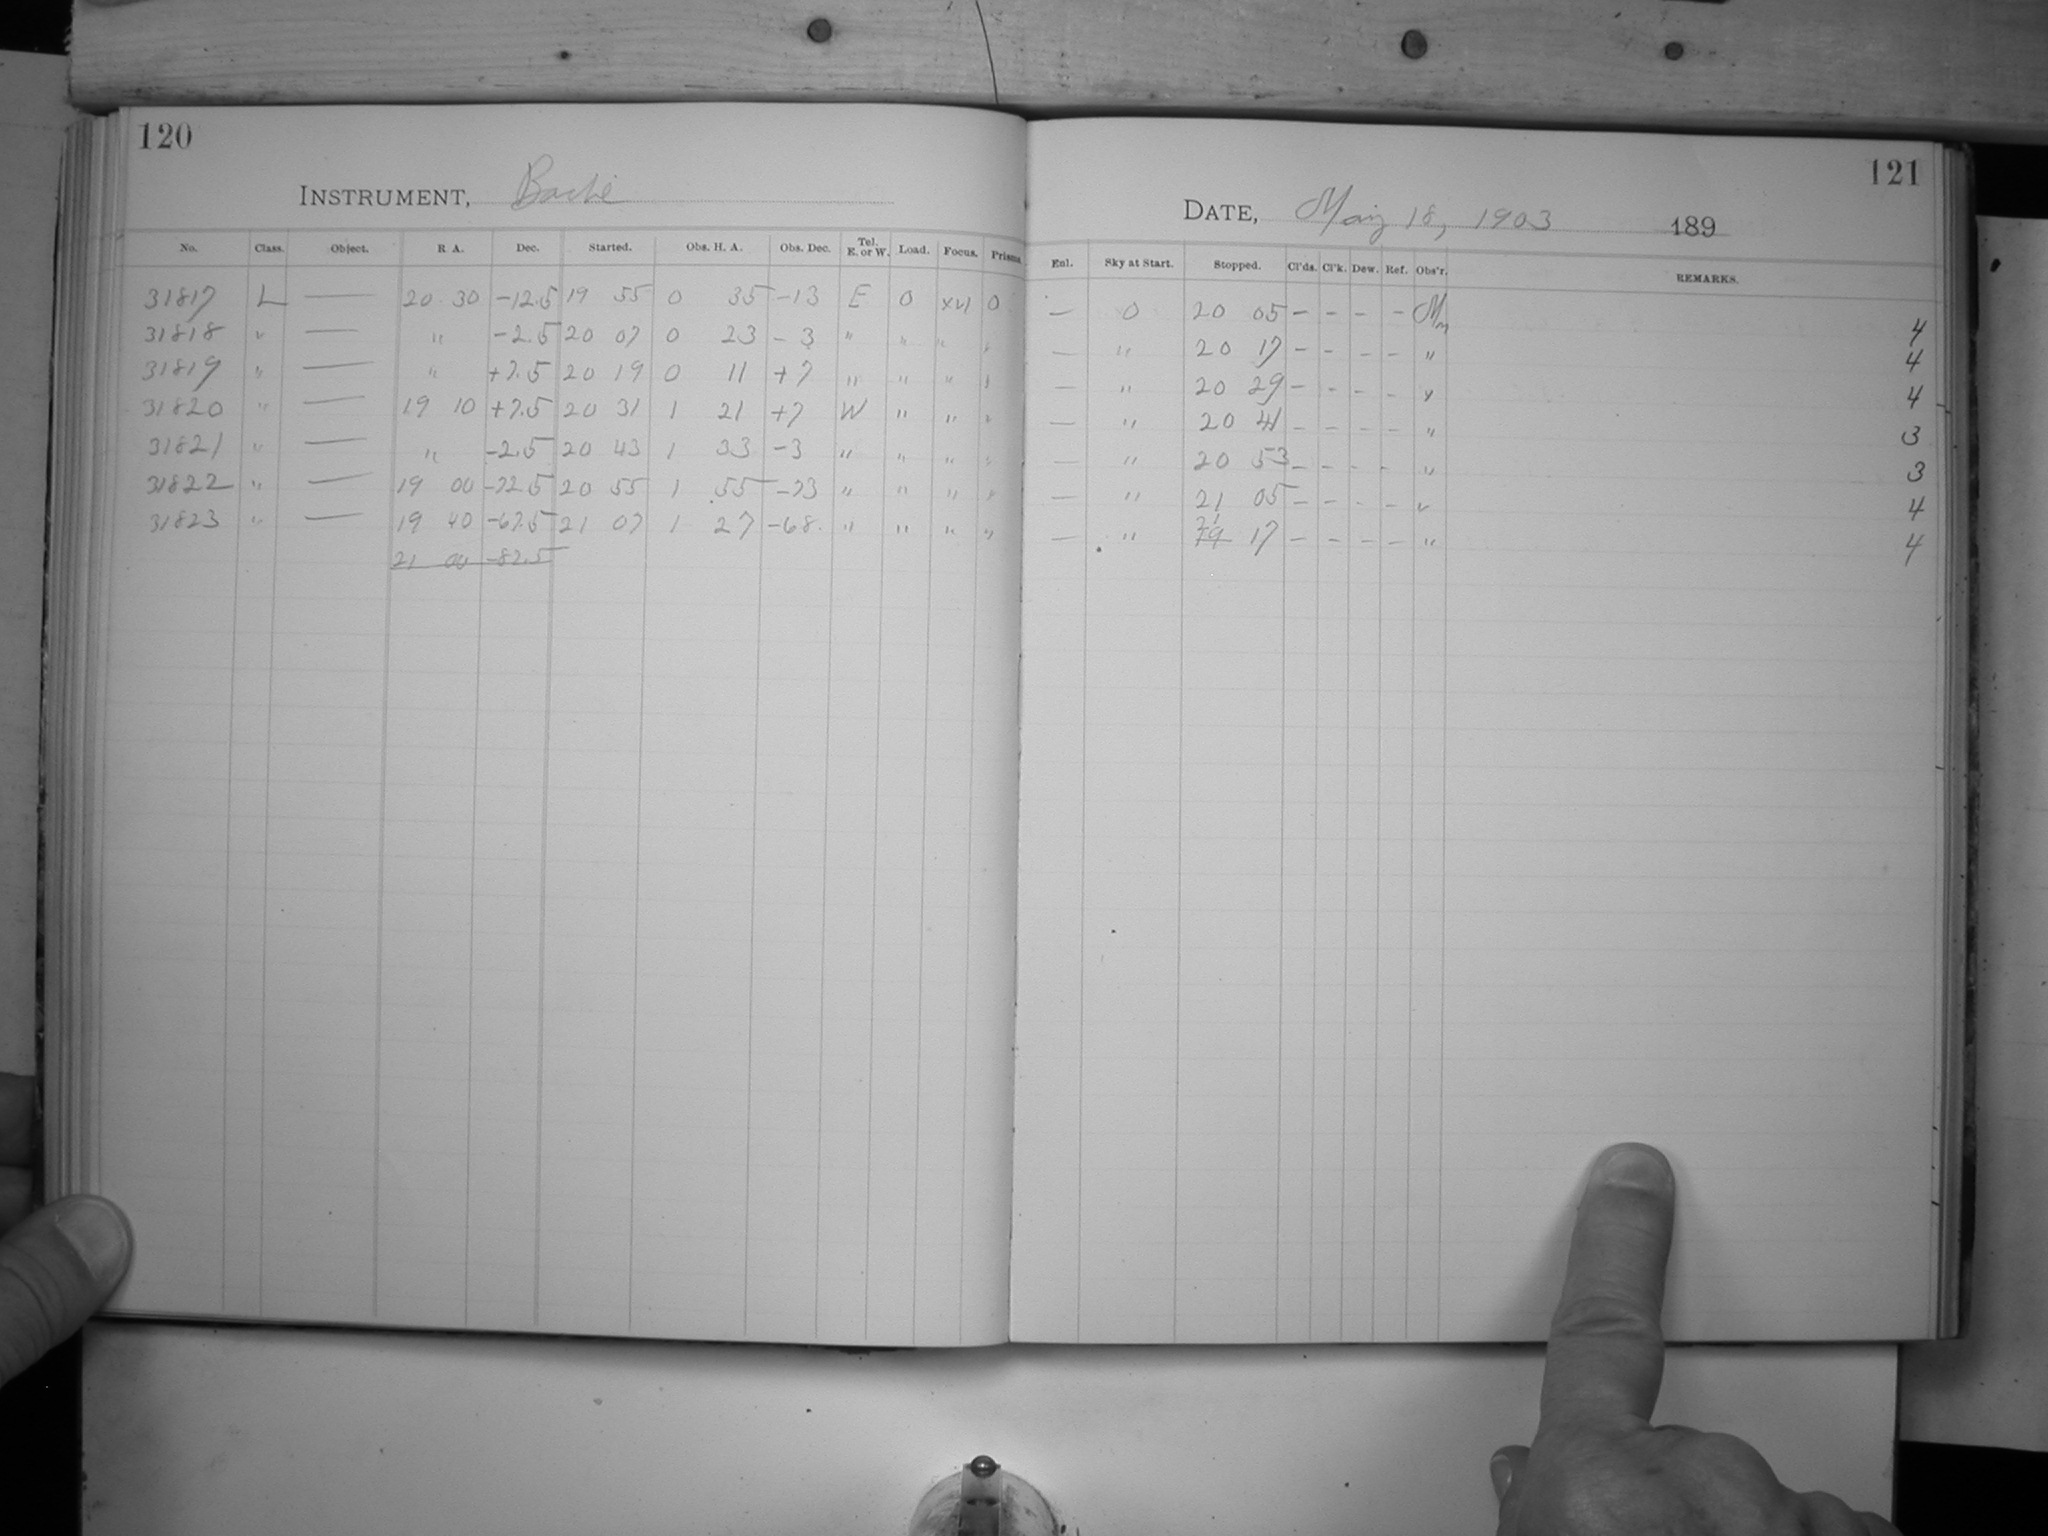 120
INSTRUMENT, Bache
No. Class. Object. R A. Dec. Started. Obs. H. A. Obs. Dec. Tel. E. or W. Load. Focus. Prisms
31817 L — 20 30 -12.5 19 55 0 35 -13 E 0 xvi 0
31818 " — " -2.5 20 07 0 23 -3 " " " "
31819 " — " +7.5 20 19 0 11 +7 " " " "
31820 " — 19 10 +7.5 20 31 1 21 +7 W " " "
31821 " — " -2.5 20 43 1 33 -3 " " " "
31822 " — 19 00 -72.5 20 55 1 55 -73 " " " "
31823 " — 19 40 -67.5 21 07 1 27 -68. " " " "
21 00 -82.5
121
DATE, May 18, 1903 189
Enl. Sky at Start. Stopped. Cl'ds. Cl'k. Dew. Ref. Obs'r. REMARKS.
— 0 20 05 - - - - Mn 4
— " 20 17 - - - - " 4
— " 20 29 - - - - " 4
— " 20 41 - - - - " 3
— " 20 53 - - - - " 3
— " 21 05 - - - - " 4
— " 21 19 17 - - - - " 4